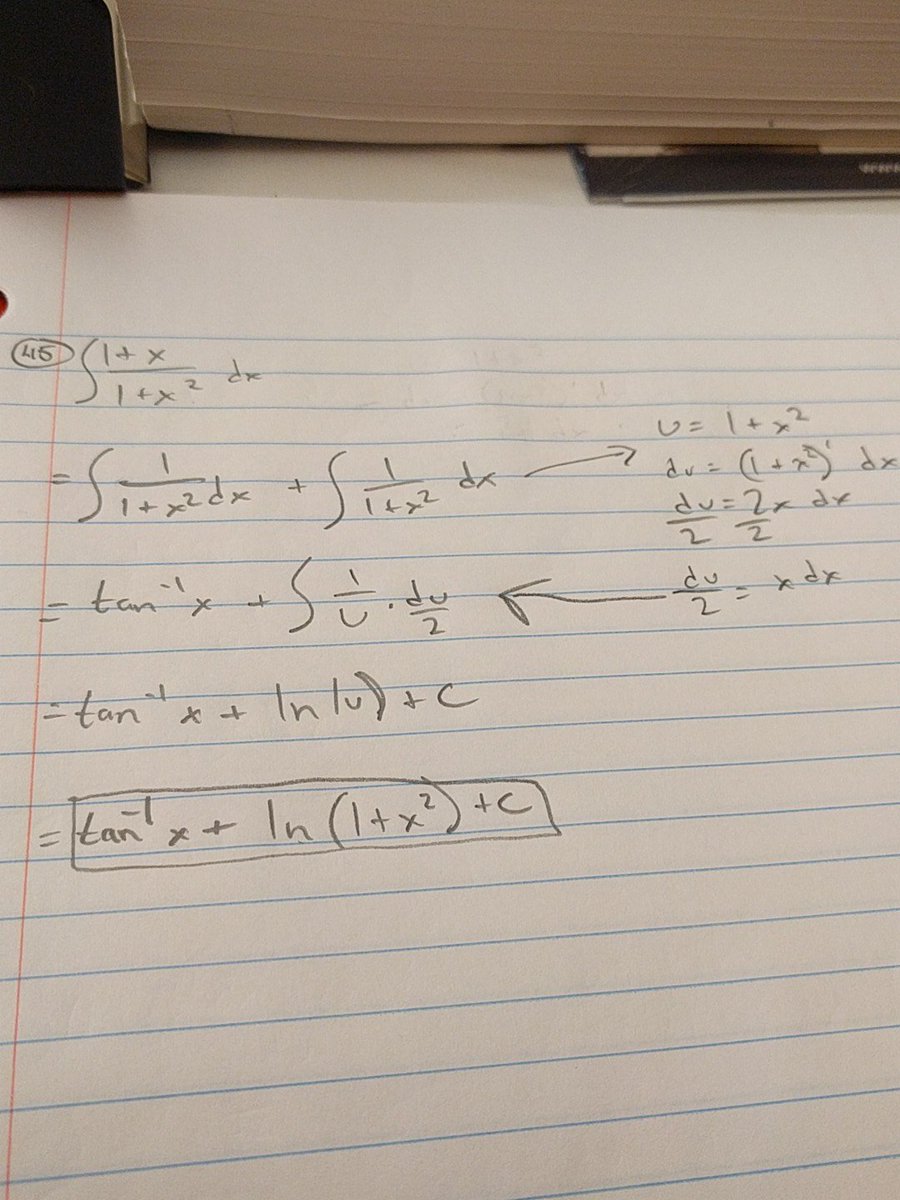 45 ∫ (1+x)/(1+x²) dx
= ∫ 1/(1+x²) dx + ∫ 1/(1+x²) dx →
u = 1+x²
du = (1+x²)' dx
du/2 = 2x/2 dx
= tan⁻¹x + ∫ 1/u · du/2 ← du/2 = x dx
= tan⁻¹ x + ln|u) + C
= tan⁻¹ x + ln(1+x²) + C